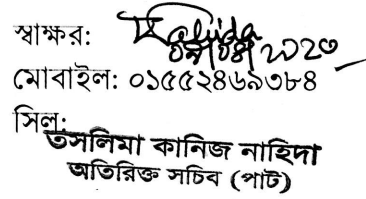 স্বাক্ষর: Nahida
মোবাইল: ০১৫৫২৪৬৯৩৮৪
সিল:
তসলিমা কানিজ নাহিদা
অতিরিক্ত সচিব (পাট)